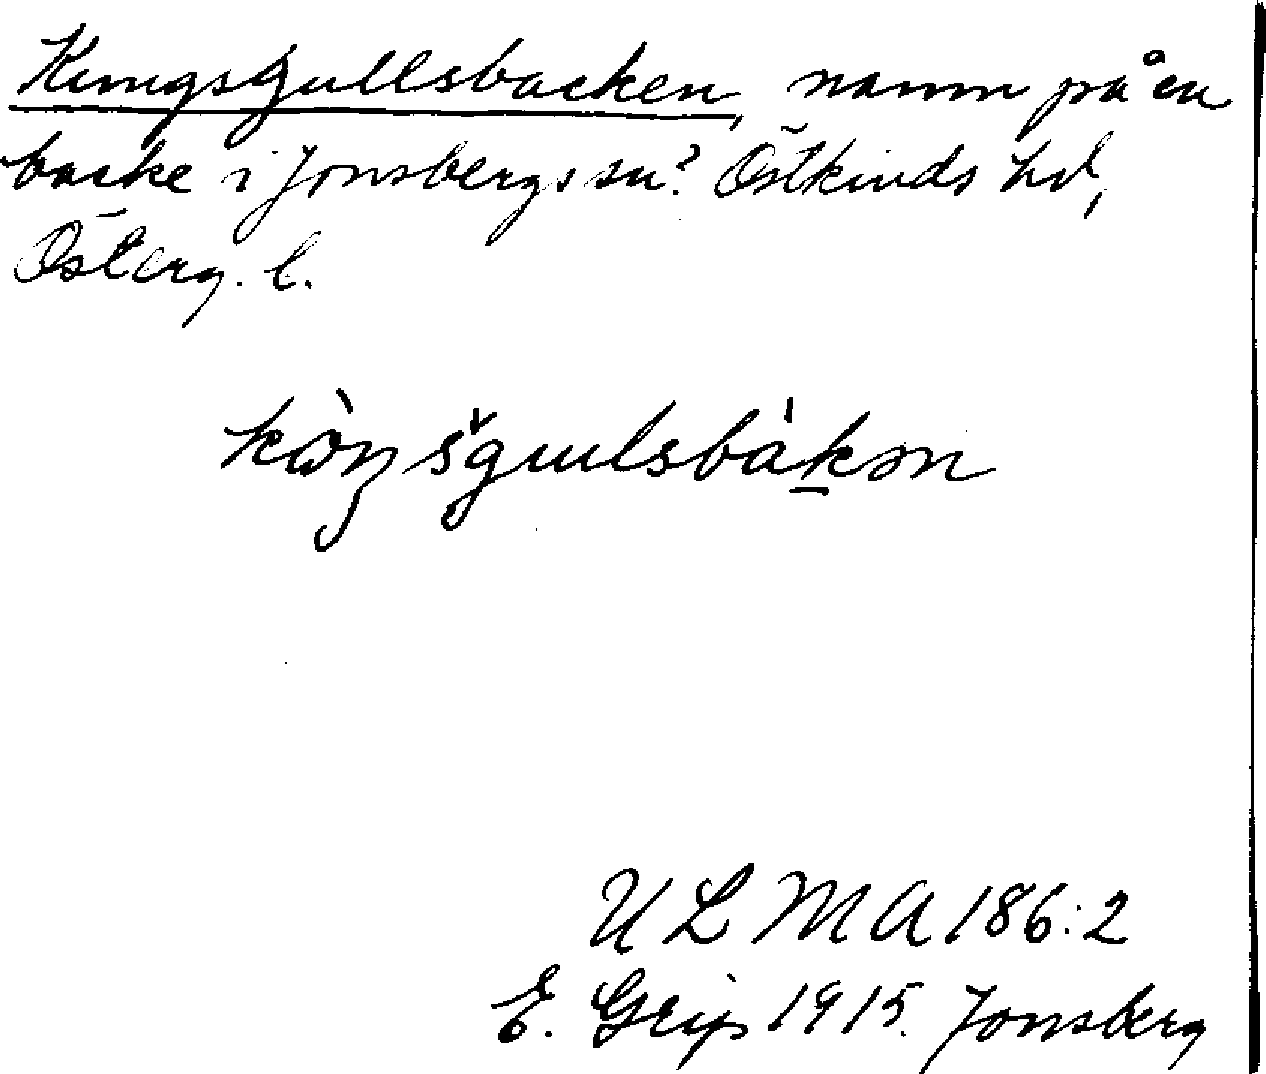 Kungsgullsbacken, namn på en
backe i Jonsbergs sn? Östkinds hd,
Österg. l.
U L M A 186:2
E. Grip 1915. Jonsberg